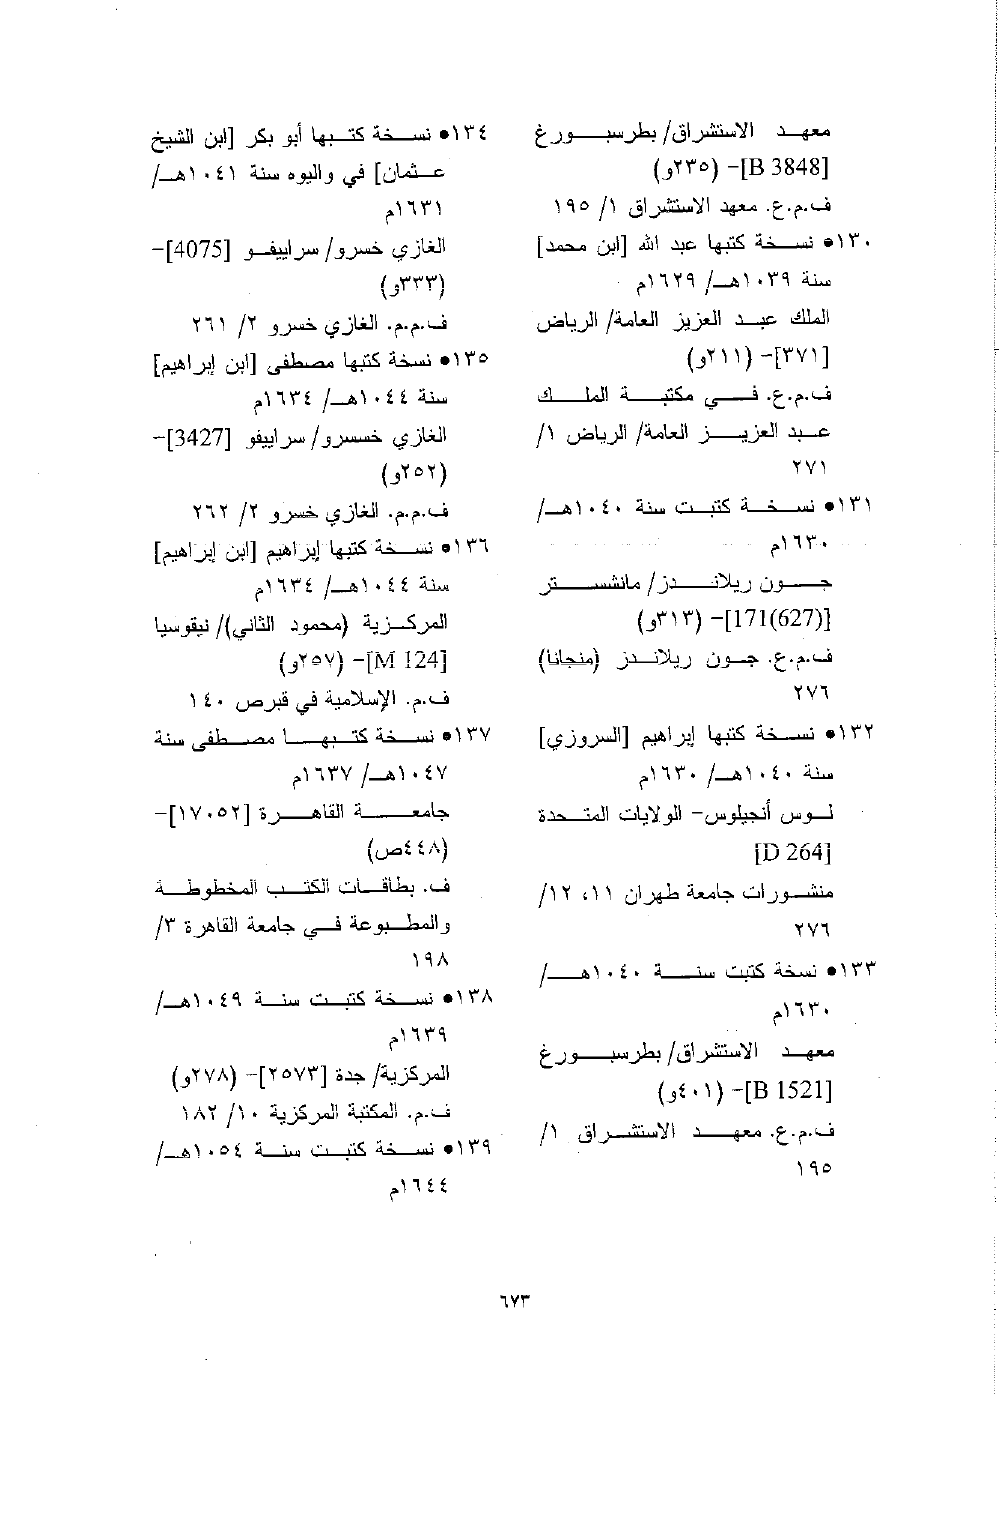 معهد الاستشراق/ بطرسبورغ
[B 3848]- (٢٣٥و)
ف.م.ع. معهد الاستشراق ١/ ١٩٥
١٣٠• نسخة كتبها عبد الله [ابن محمد]
سنة ١٠٣٩هـ/ ١٦٢٩م
الملك عبد العزيز العامة/ الرياض
[٣٧١]- (٢١١و)
ف.م.ع. في مكتبة الملك
عبد العزيز العامة/ الرياض ١/
٢٧١
١٣١• نسخة كتبت سنة ١٠٤٠هـ/
١٦٣٠م
جون ريلاندز/ مانشستر
[171(627)]- (٣١٣و)
ف.م.ع. جون ريلاندز (منجانا)
٢٧٦
١٣٢• نسخة كتبها إبراهيم [السروزي]
سنة ١٠٤٠هـ/ ١٦٣٠م
لوس أنجيلوس- الولايات المتحدة
[D 264]
منشورات جامعة طهران ١١، ١٢/
٢٧٦
١٣٣• نسخة كتبت سنة ١٠٤٠هـ/
١٦٣٠م
معهد الاستشراق/ بطرسبورغ
[B 1521]- (٤٠١و)
ف.م.ع. معهد الاستشراق ١/
١٩٥
١٣٤• نسخة كتبها أبو بكر [ابن الشيخ
عثمان] في واليوه سنة ١٠٤١هـ/
١٦٣١م
الغازي خسرو/ سراييفو [4075]-
(٣٣٣و)
ف.م.م. الغازي خسرو ٢/ ٢٦١
١٣٥• نسخة كتبها مصطفى [ابن إبراهيم]
سنة ١٠٤٤هـ/ ١٦٣٤م
الغازي خسرو/ سراييفو [3427]-
(٢٥٢و)
ف.م.م. الغازي خسرو ٢/ ٢٦٢
١٣٦• نسخة كتبها إبراهيم [ابن إبراهيم]
سنة ١٠٤٤هـ/ ١٦٣٤م
المركزية (محمود الثاني)/ نيقوسيا
[M 124]- (٢٥٧و)
ف.م. الإسلامية في قبرص ١٤٠
١٣٧• نسخة كتبها مصطفى سنة
١٠٤٧هـ/ ١٦٣٧م
جامعة القاهرة [١٧٠٥٢]-
(٤٤٨ص)
ف. بطاقات الكتب المخطوطة
والمطبوعة في جامعة القاهرة ٣/
١٩٨
١٣٨• نسخة كتبت سنة ١٠٤٩هـ/
١٦٣٩م
المركزية/ جدة [٢٥٧٣]- (٢٧٨و)
ف.م. المكتبة المركزية ١٠/ ١٨٢
١٣٩• نسخة كتبت سنة ١٠٥٤هـ/
١٦٤٤م
٦٧٣